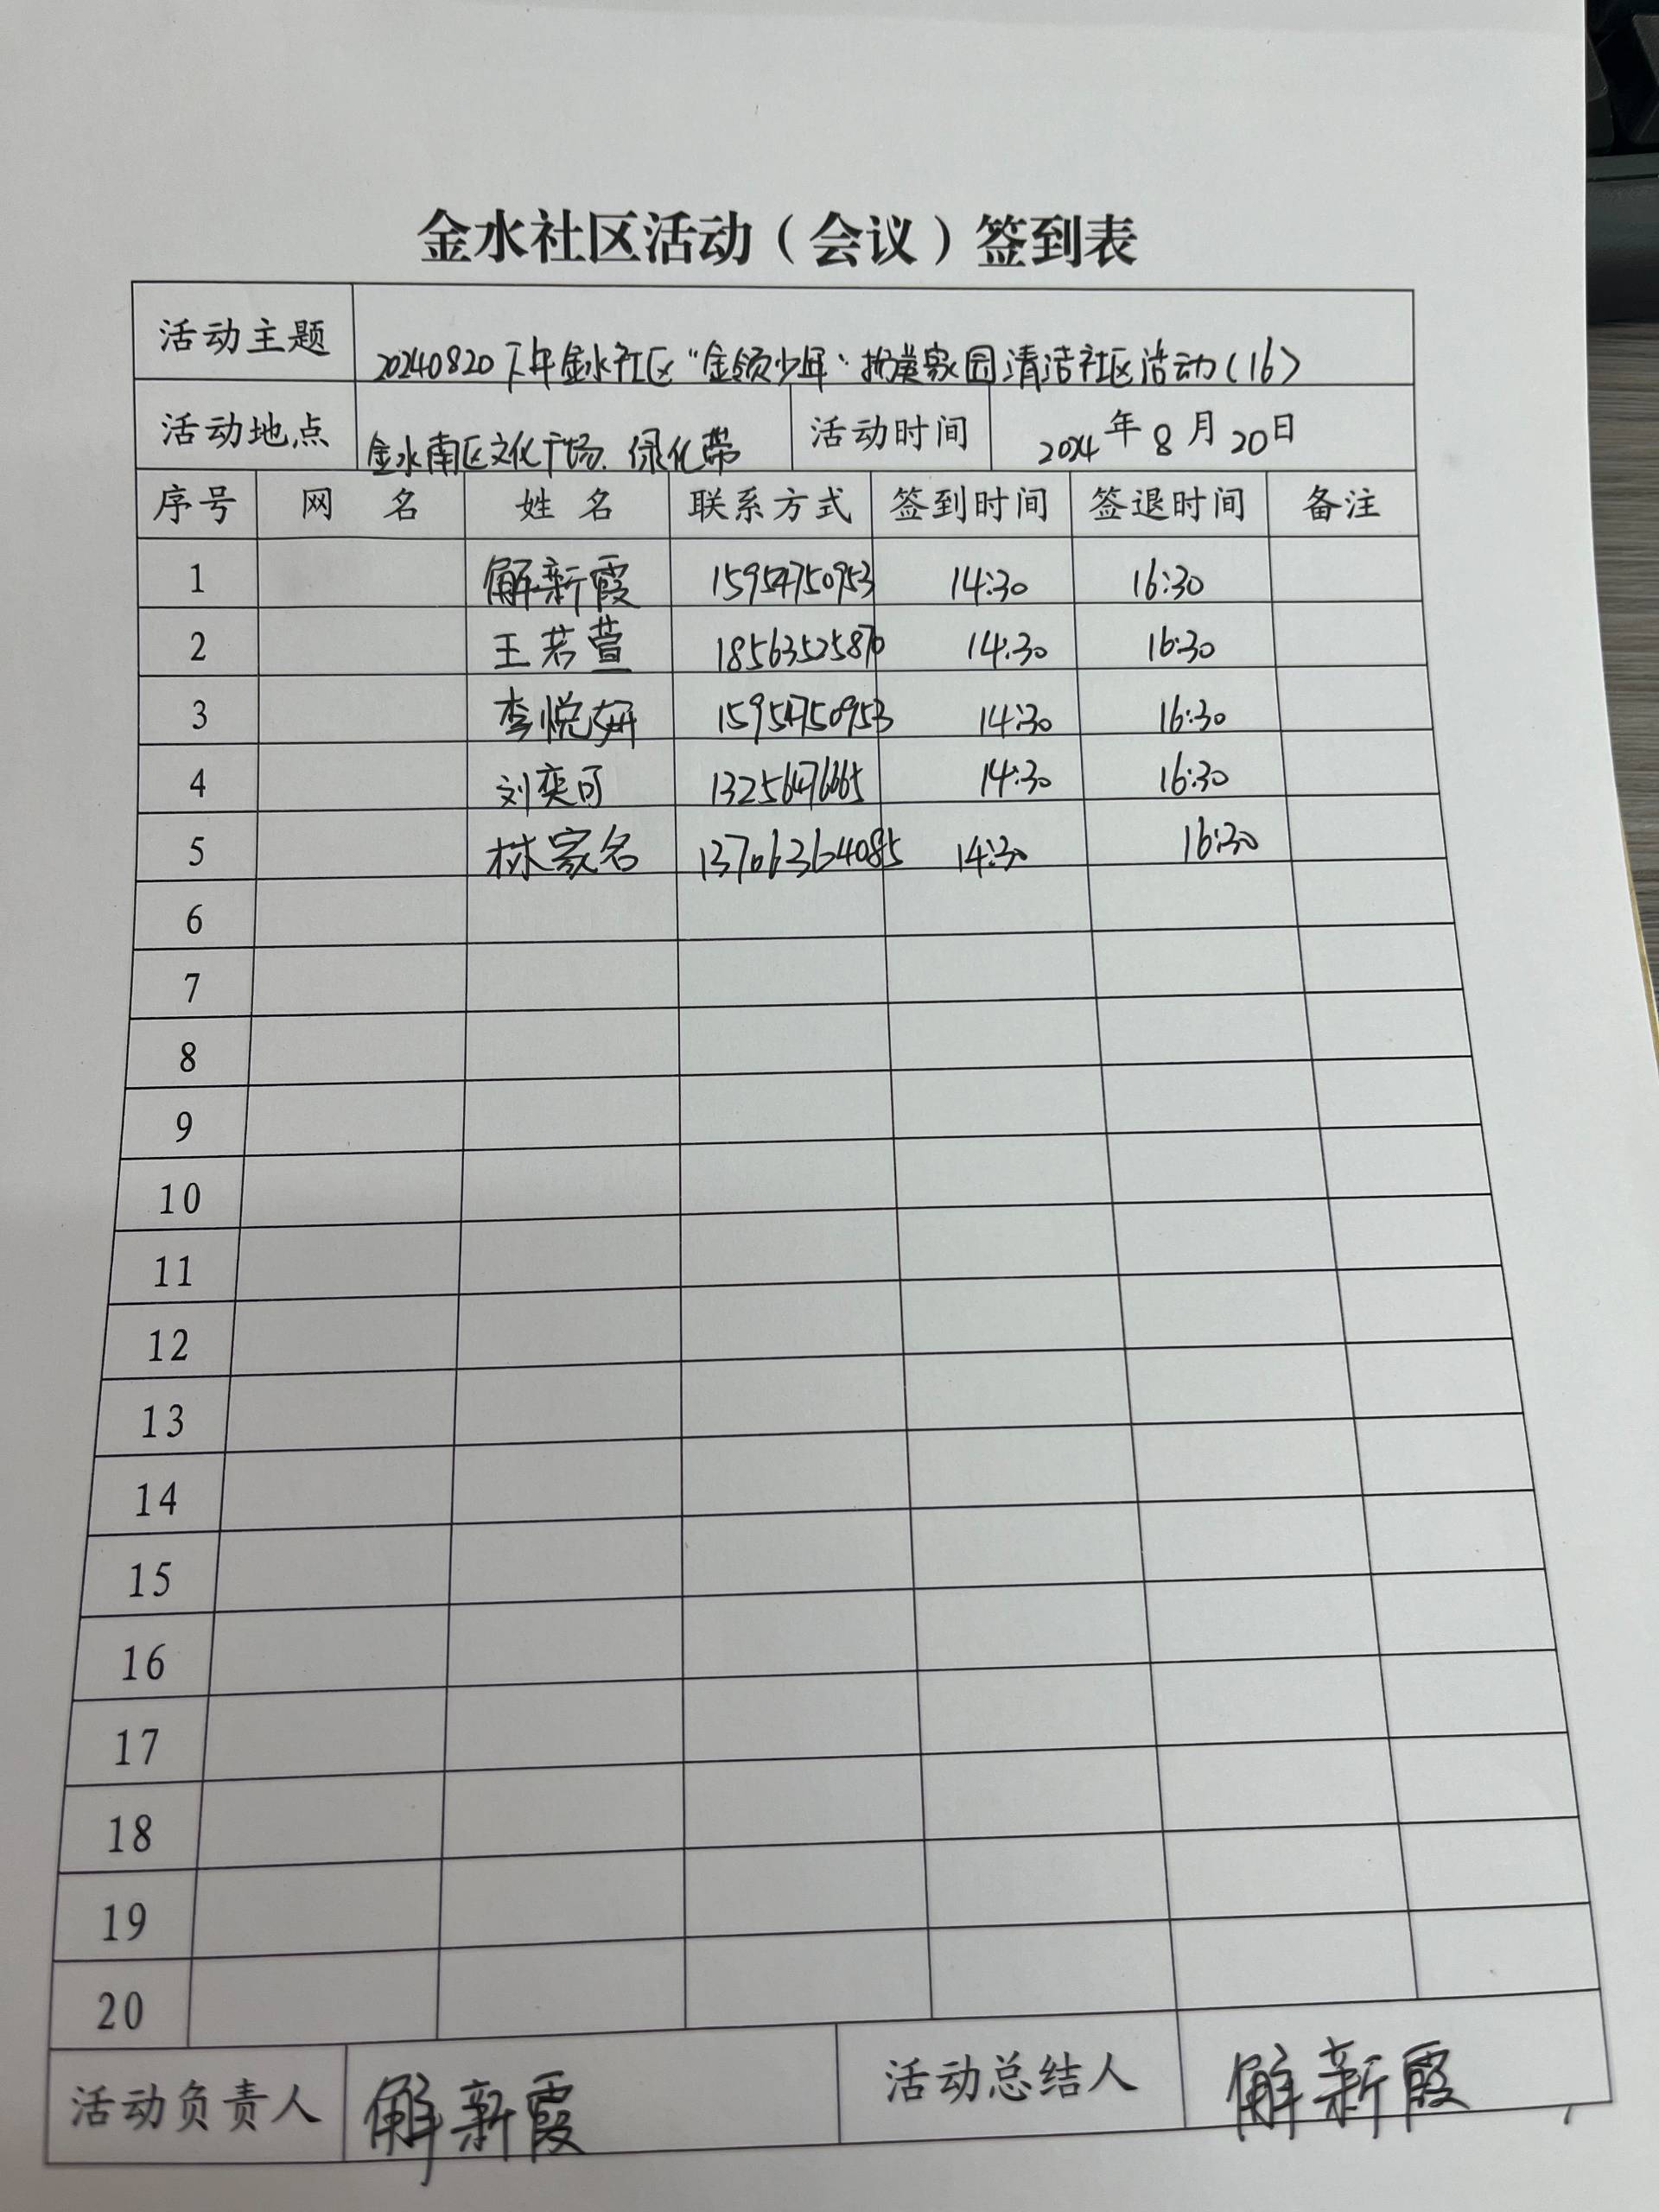 金水社区活动（会议）签到表
活动主题 20240820下午金水社区“金领少年”扮美家园清洁社区活动(16)
活动地点 金水南区文化广场、绿化带 活动时间 2024年8月20日
序号 网 名 姓 名 联系方式 签到时间 签退时间 备注
1 解新霞 15954750953 14:30 16:30
2 王若萱 18563525870 14:30 16:30
3 李悦妍 15954750953 14:30 16:30
4 刘奕可 13256476665 14:30 16:30
5 林家名 13706364085 14:30 16:30
6
7
8
9
10
11
12
13
14
15
16
17
18
19
20
活动负责人 解新霞 活动总结人 解新霞